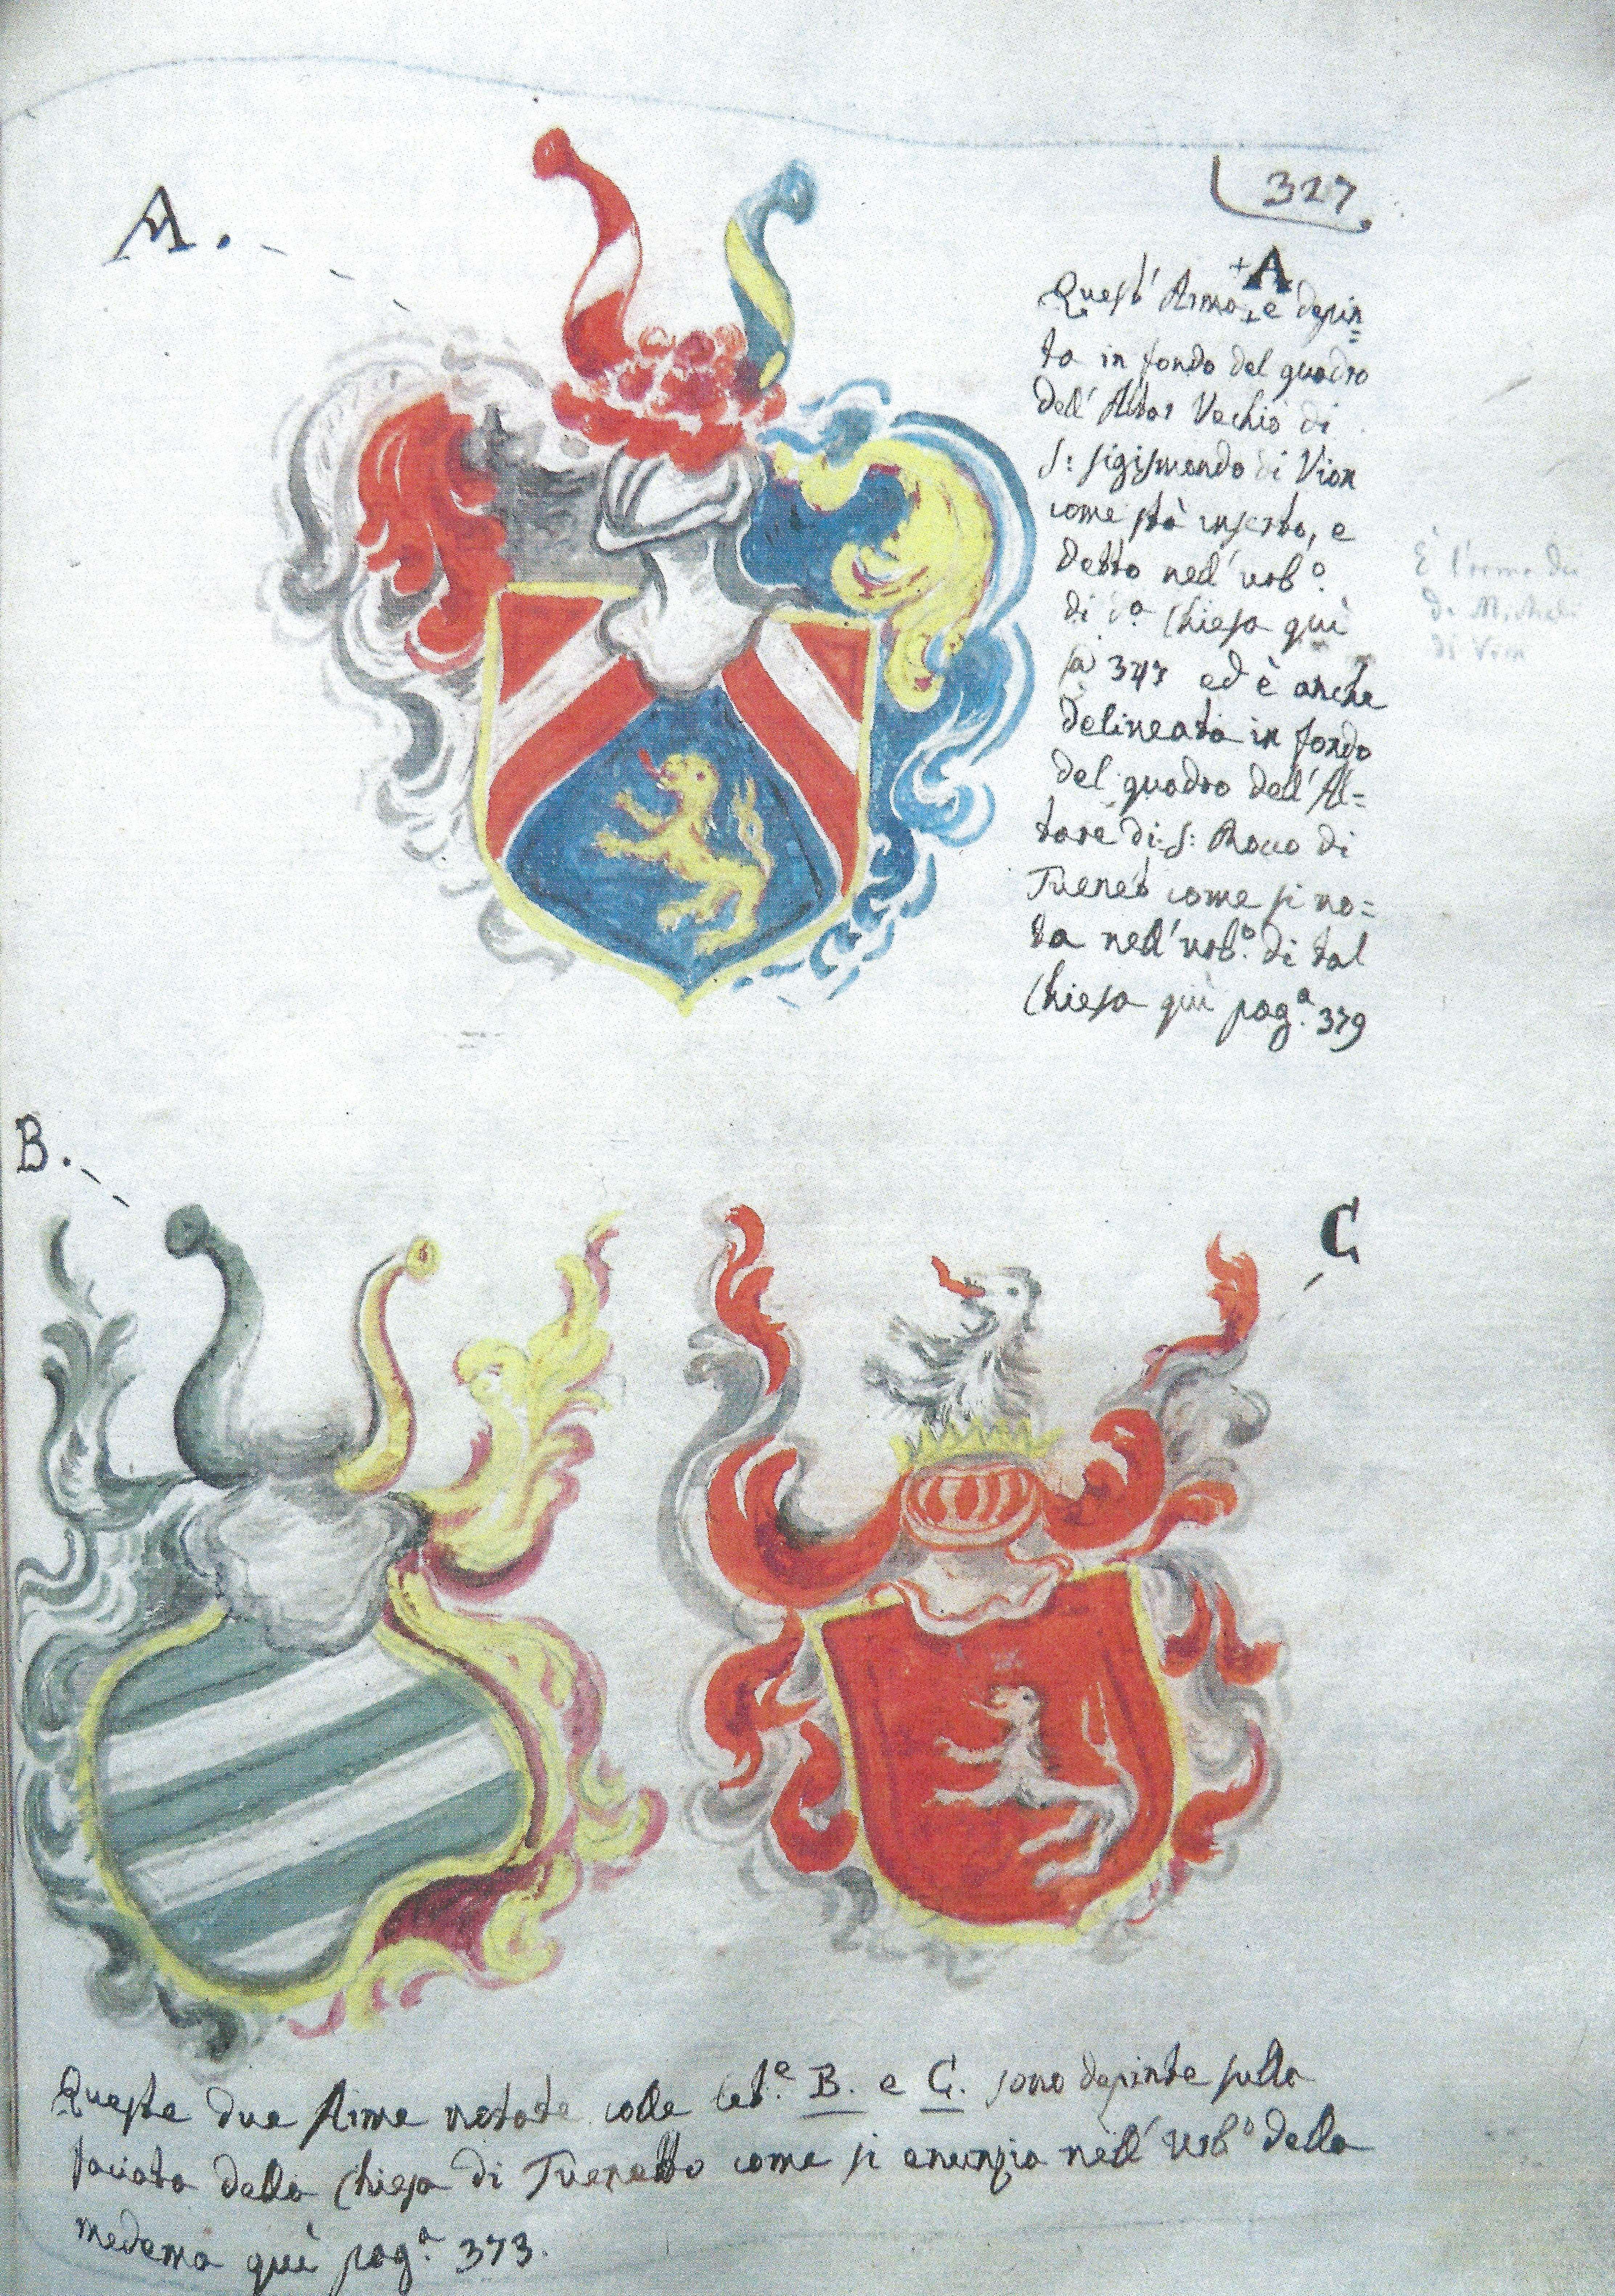 A.
327
+A
Quest' Arma + è depin=
ta in fondo del quadro
dell' Altar Vechio di
S: Sigismondo di Vion
come stà inserto, e
detto nell' urb.º
di d.ª Chiesa quì
a 347 ed è anche
delineata in fondo
del quadro dell' Al=
tare di S: Rocco di
Tuenet come si no=
ta nell' urb.º di tal
Chiesa quì pag.ª 379
È l'arma dei
de Micheli
di Vion
B.
C
Queste due Arme notate colle let.e B. e C. sono depinte sulla
faciata della Chiesa di Tuenetto come si anunzia nell' urb.º della
medema quì pag.ª 373.